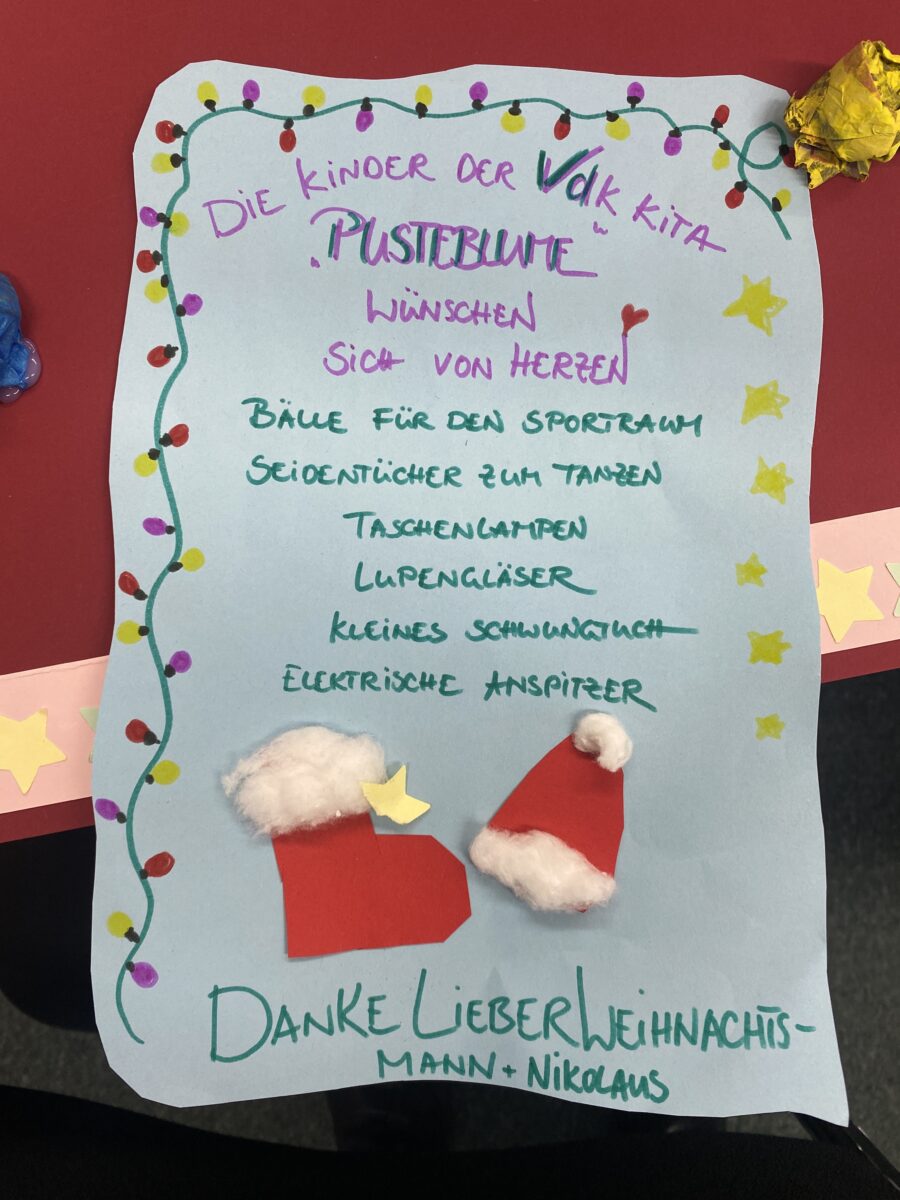 DIE KINDER DER VdK KITA
„PUSTEBLUME"
WÜNSCHEN
SICH VON HERZEN
BÄLLE FÜR DEN SPORTRAUM
SEIDENTÜCHER ZUM TANZEN
TASCHENLAMPEN
LUPENGLÄSER
KLEINES SCHWUNGTUCH
ELEKTRISCHE ANSPITZER
DANKE LIEBER WEIHNACHTS-
MANN + NIKOLAUS